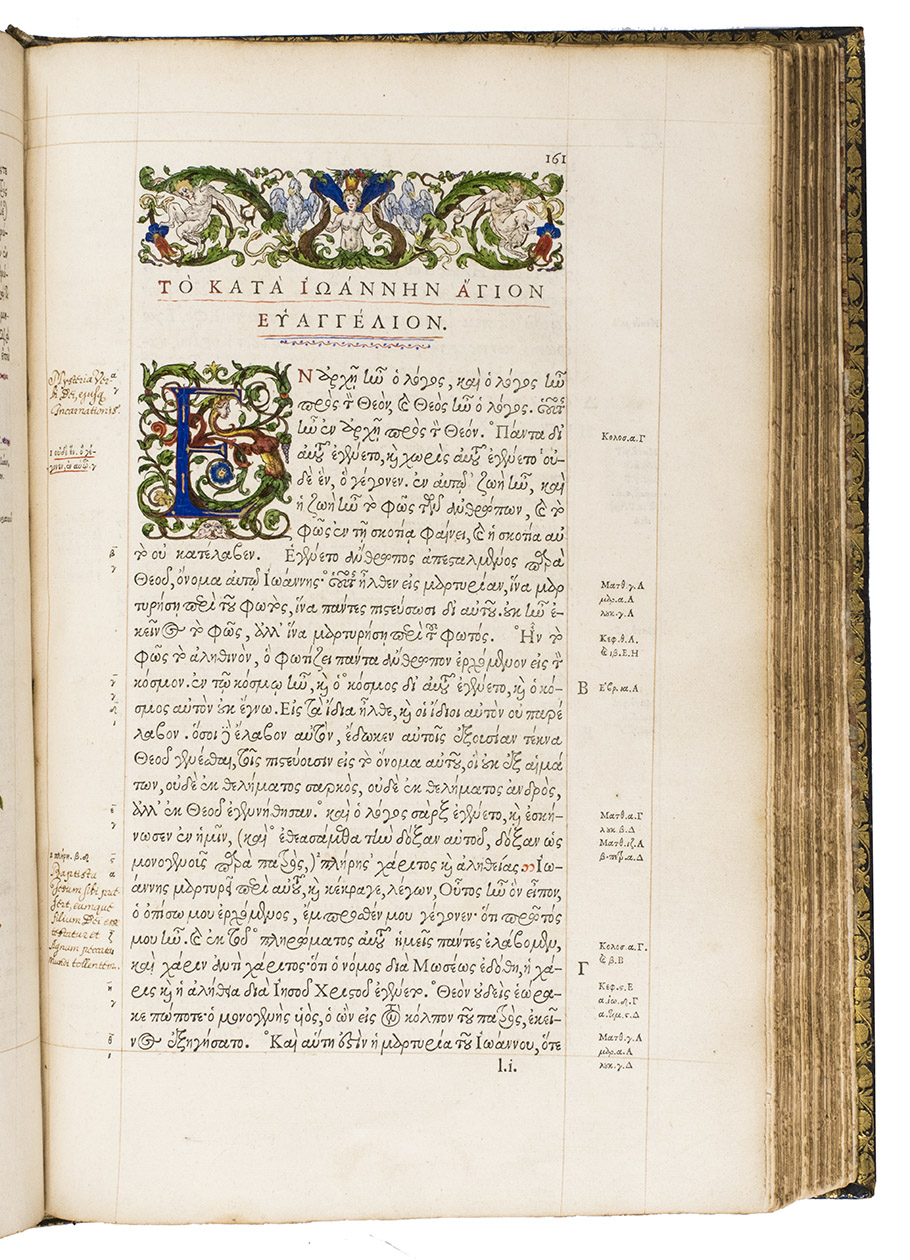 161
ΤῸ ΚΑΤᾺ ἸΩΆΝΝΗΝ ἍΓΙΟΝ
ΕΥ̓ΑΓΓΈΛΙΟΝ.
ΕΝ ἀρχῇ ἦν ὁ λόγος, καὶ ὁ λόγος ἦν
πρὸς τὸν Θεὸν, καὶ Θεὸς ἦν ὁ λόγος. οὗτος
ἦν ἐν ἀρχῇ πρὸς τὸν Θεόν. Πάντα δι
αὐτοῦ ἐγένετο, καὶ χωρὶς αὐτοῦ ἐγένετο οὐ-
δὲ ἓν, ὃ γέγονεν. ἐν αὐτῷ ζωὴ ἦν, καὶ
ἡ ζωὴ ἦν τὸ φῶς τῶν ἀνθρώπων, καὶ τὸ
φῶς ἐν τῇ σκοτίᾳ φαίνει, καὶ ἡ σκοτία αὐ
τὸ οὐ κατέλαβεν. Ἐγένετο ἄνθρωπος ἀπεσταλμένος παρὰ
Θεοῦ, ὄνομα αὐτῷ Ἰωάννης· οὗτος ἦλθεν εἰς μαρτυρίαν, ἵνα μαρ
τυρήσῃ περὶ τοῦ φωτὸς, ἵνα πάντες πιστεύσωσι δι αὐτοῦ. οὐκ ἦν ἐ-
κεῖνος τὸ φῶς, ἀλλ' ἵνα μαρτυρήσῃ περὶ τοῦ φωτός. Ἦν τὸ
φῶς τὸ ἀληθινὸν, ὃ φωτίζει πάντα ἄνθρωπον ἐρχόμενον εἰς τὸν
κόσμον. ἐν τῷ κόσμῳ ἦν, καὶ ὁ κόσμος δι' αὐτοῦ ἐγένετο, καὶ ὁ κό-
σμος αὐτὸν οὐκ ἔγνω. Εἰς τὰ ἴδια ἦλθε, καὶ οἱ ἴδιοι αὐτὸν οὐ παρέ
λαβον. ὅσοι δὲ ἔλαβον αὐτὸν, ἔδωκεν αὐτοῖς ἐξουσίαν τέκνα
Θεοῦ γενέσθαι, τοῖς πιστεύουσιν εἰς τὸ ὄνομα αὐτοῦ, οἳ οὐκ ἐξ αἱμά
των, οὐδὲ ἐκ θελήματος σαρκὸς, οὐδὲ ἐκ θελήματος ἀνδρὸς,
ἀλλ' ἐκ Θεοῦ ἐγεννήθησαν. καὶ ὁ λόγος σὰρξ ἐγένετο, καὶ ἐσκή-
νωσεν ἐν ἡμῖν, (καὶ ἐθεασάμεθα τὴν δόξαν αὐτοῦ, δόξαν ὡς
μονογενοῦς παρὰ πατρὸς,) πλήρης χάριτος καὶ ἀληθείας. Ἰω-
άννης μαρτυρεῖ περὶ αὐτοῦ, καὶ κέκραγε, λέγων, Οὗτος ἦν ὃν εἶπον,
ὁ ὀπίσω μου ἐρχόμενος, ἔμπροσθέν μου γέγονεν· ὅτι πρῶτός
μου ἦν. καὶ ἐκ τοῦ πληρώματος αὐτοῦ ἡμεῖς πάντες ἐλάβομεν,
καὶ χάριν ἀντὶ χάριτος· ὅτι ὁ νόμος διὰ Μωσέως ἐδόθη, ἡ χά-
ρις καὶ ἡ ἀλήθεια διὰ Ἰησοῦ Χριστοῦ ἐγένετο. Θεὸν οὐδεὶς ἑώρα-
κε πώποτε· ὁ μονογενὴς υἱὸς, ὁ ὢν εἰς τὸν κόλπον τοῦ πατρὸς, ἐκεῖ-
νος ἐξηγήσατο. Καὶ αὕτη ἐστὶν ἡ μαρτυρία τοῦ Ἰωάννου, ὅτε
l.i.
Mysteria Ver
bi Dei, ejusq.
Incarnationis.
Baptista
mundi tollentem.
Κολοσ.α.Γ
Ματθ.γ.Α
μαρ.α.Α
λυκ.γ.Α
Κεφ.θ.Α.
καὶ ιβ.Ε.Η
Β Ἑβρ.ια.Α
Ματθ.α.Γ
λυκ.β.Δ
Ματθ.ιζ.Α
β.πετρ.α.Δ
Κολοσ.α.Γ.
καὶ β.Β
Γ
Κεφ.ς.Ε
α.ιω.δ.Γ
α.τιμ.ς.Δ
Ματθ.γ.Α
μαρ.α.Α
λυκ.γ.Δ